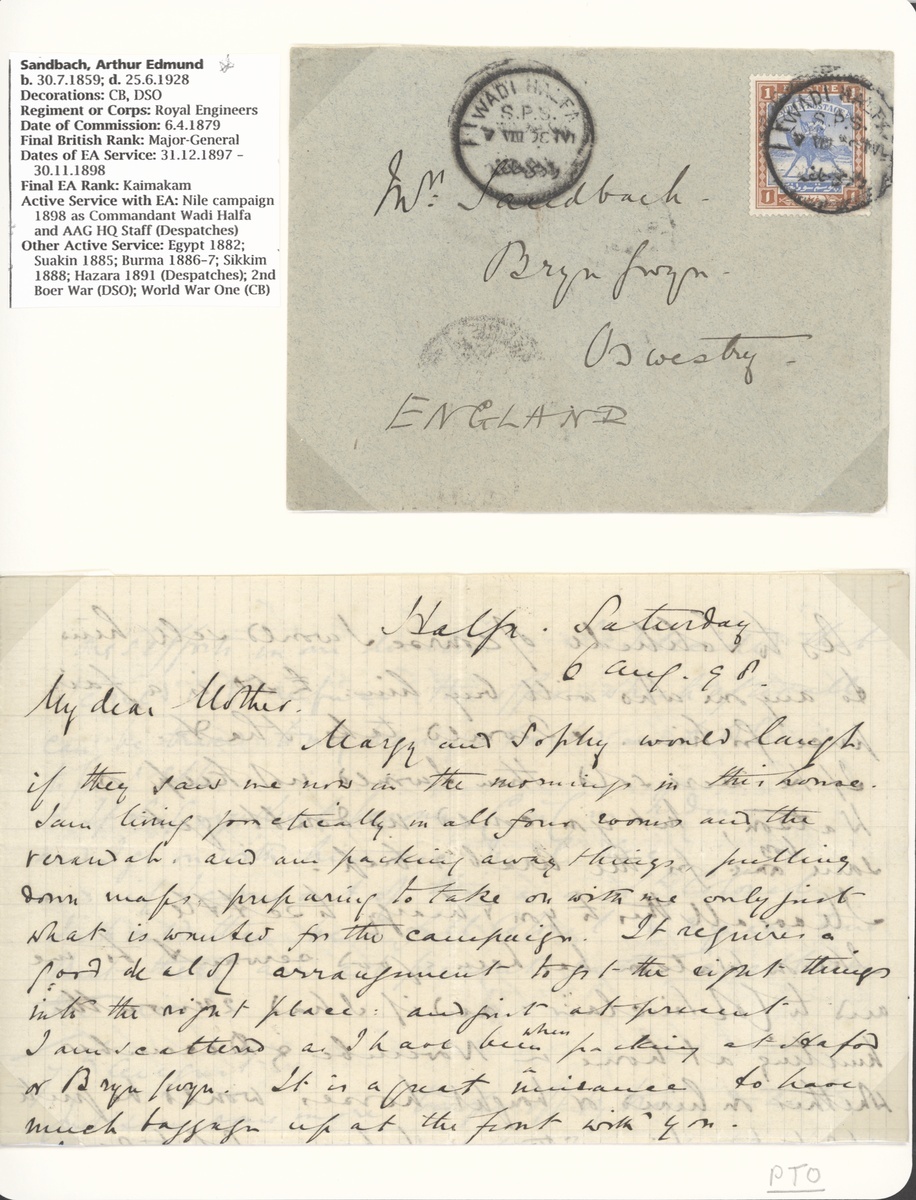 Sandbach, Arthur Edmund
b. 30.7.1859; d. 25.6.1928
Decorations: CB, DSO
Regiment or Corps: Royal Engineers
Date of Commission: 6.4.1879
Final British Rank: Major-General
Dates of EA Service: 31.12.1897 –
30.11.1898
Final EA Rank: Kaimakam
Active Service with EA: Nile campaign
1898 as Commandant Wadi Halfa
and AAG HQ Staff (Despatches)
Other Active Service: Egypt 1882;
Suakin 1885; Burma 1886–7; Sikkim
1888; Hazara 1891 (Despatches); 2nd
Boer War (DSO); World War One (CB)
WADI HALFA
S.P.S.
VIII
1 1
WADI HALFA
S.P.S.
VIII
1 1
Mrs Sandbach.
Bryn Gwyn.
Oswestry.
ENGLAND
Halfa. Saturday
6 Aug. 98.
My dear Mother.
Margy and Sophy would laugh
if they saw me now in the mornings in this house.
I am living practically in all four rooms and the
verandah. and am packing away things pulling
down maps, preparing to take on with me only just
what is wanted for the campaign. It requires a
good deal of arrangement to get the right things
into the right place: and just at present
I am scattered as I have been when packing at Hafod
or Bryn Gwyn. It is a great nuisance to have
much baggage up at the front with you.
PTO